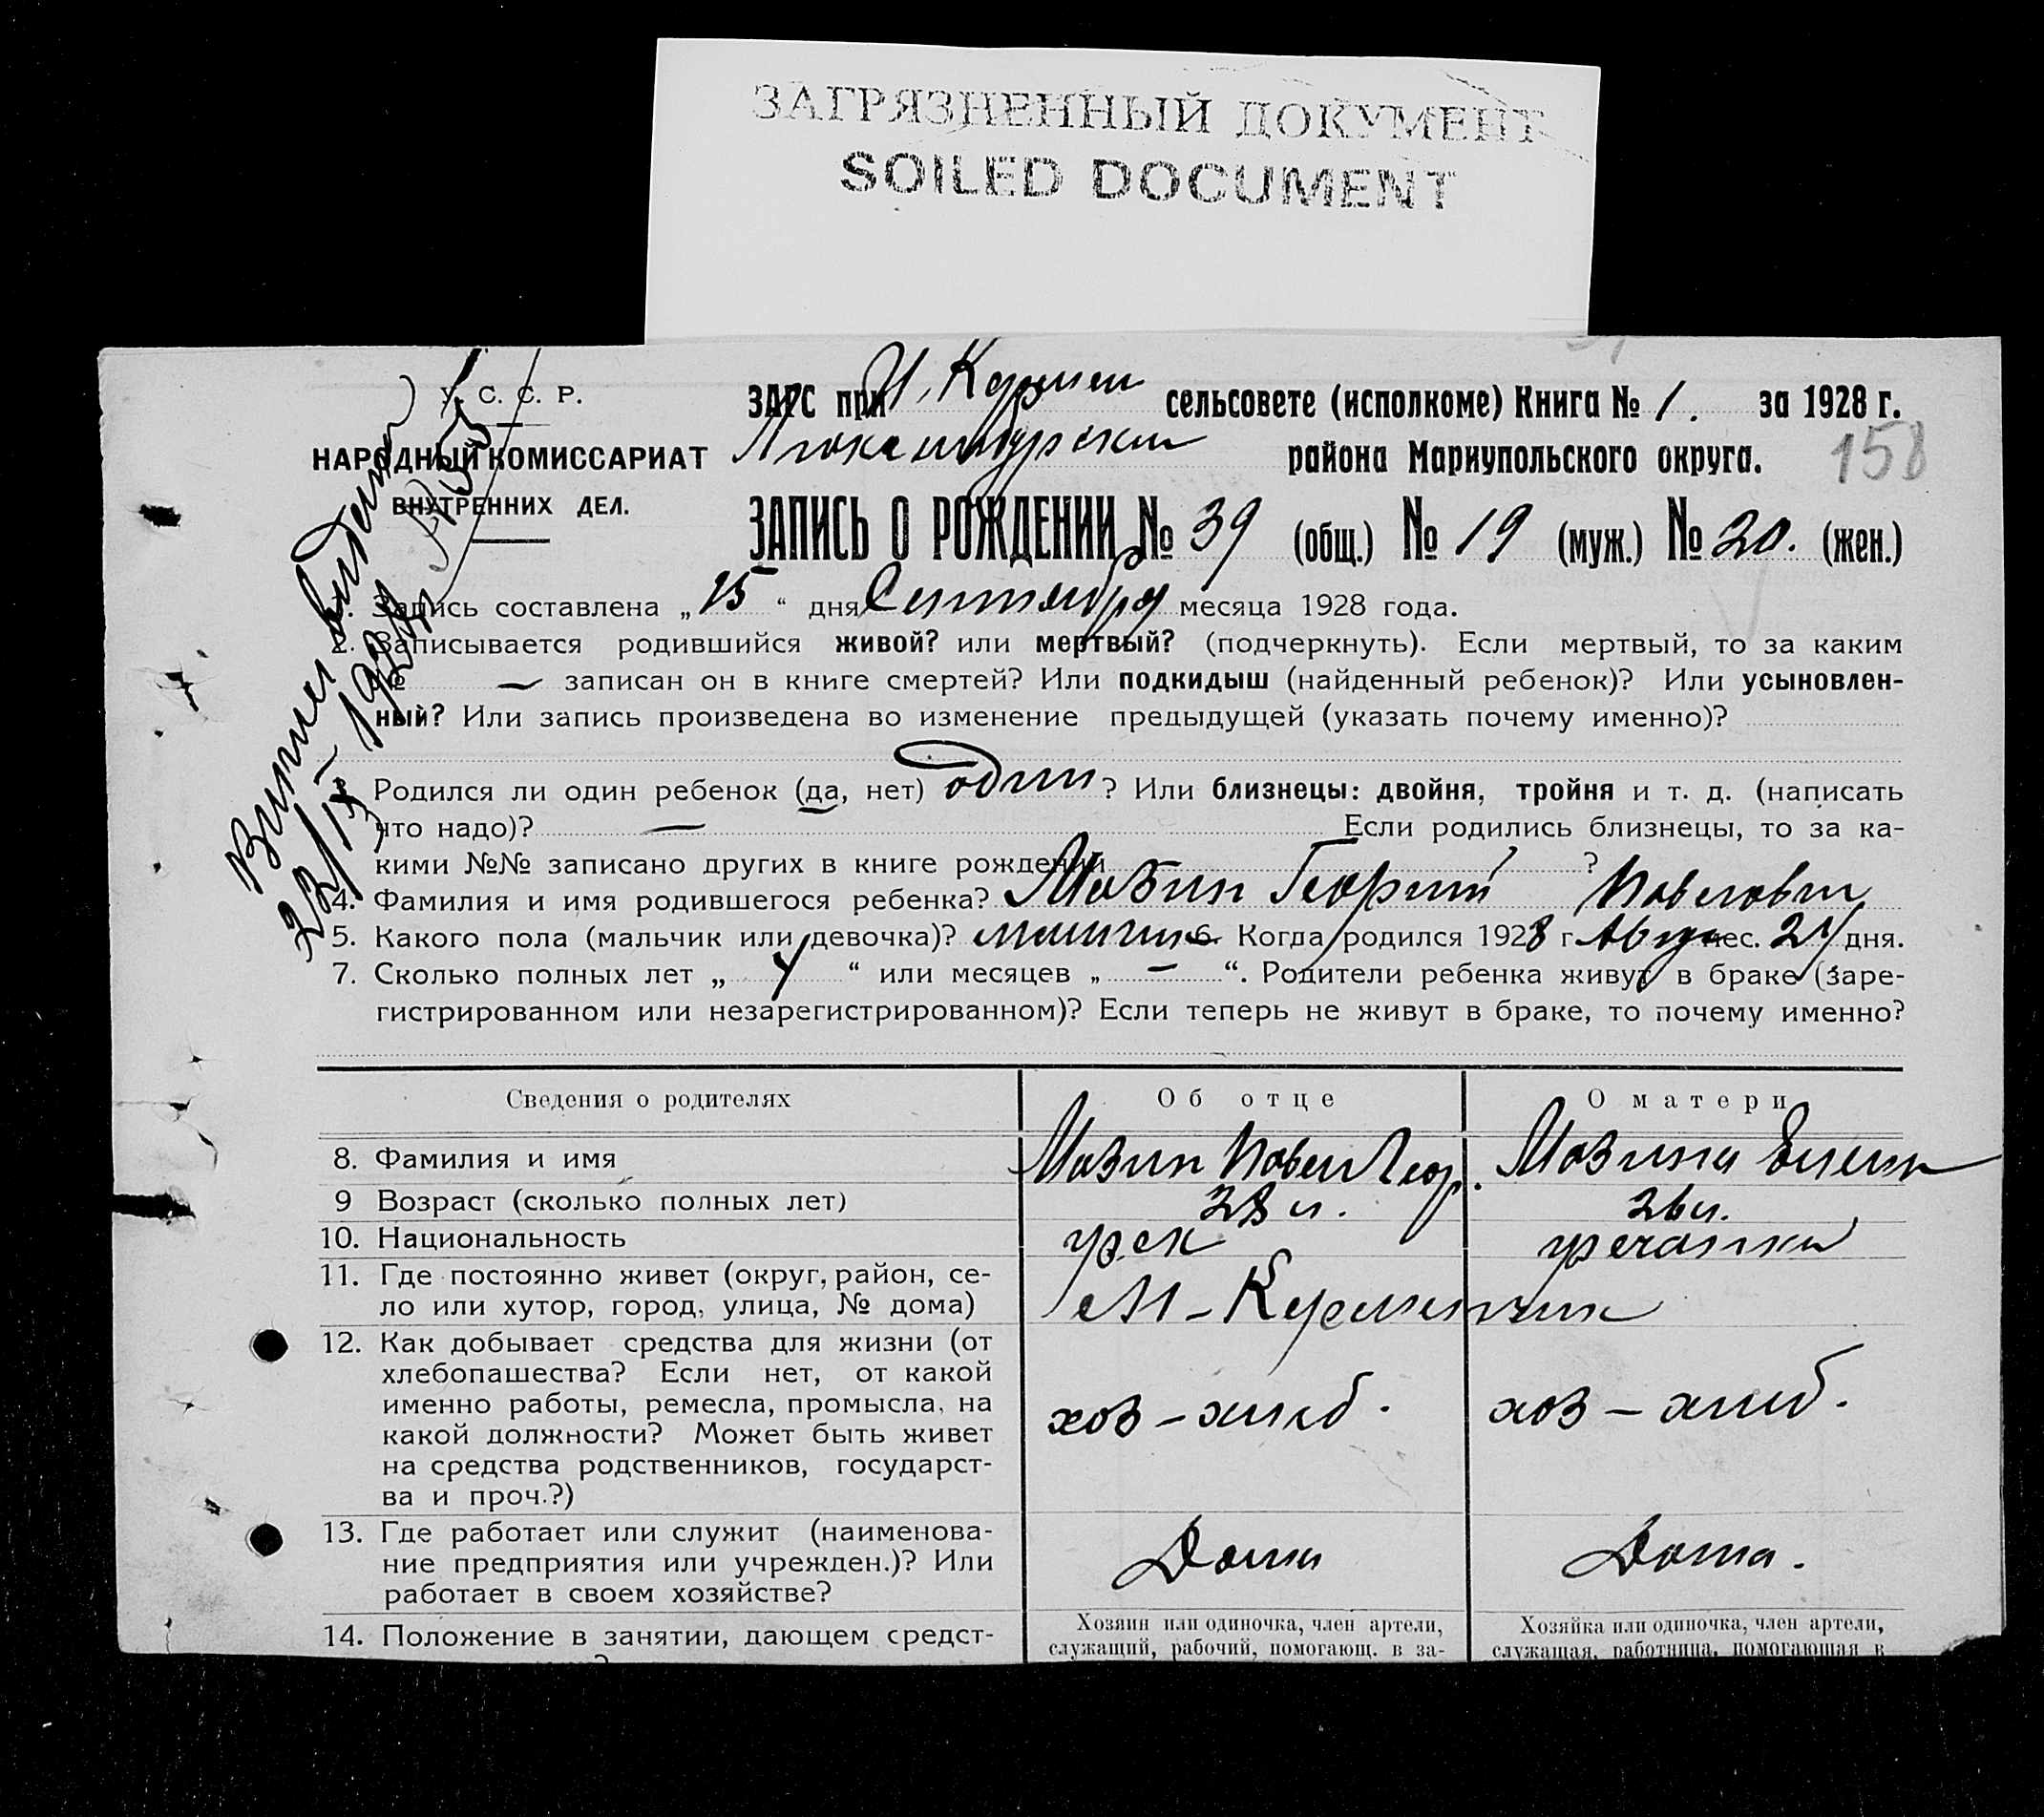 ЗАГРЯЗНЕННЫЙ ДОКУМЕНТ
SOILED DOCUMENT
У. С. С. Р.
НАРОДНЫЙ КОМИССАРИАТ
ВНУТРЕННИХ ДЕЛ.
ЗАГС при сельсовете (исполкоме) Книга № 1. за 1928 г.
района Мариупольского округа. 158
ЗАПИСЬ О РОЖДЕНИИ № 39 (общ.) № 19 (муж.) № 20. (жен.)
1. Запись составлена „ 15 “ дня Сентября месяца 1928 года.
2. Записывается родившийся живой? или мертвый? (подчеркнуть). Если мертвый, то за каким
№ — записан он в книге смертей? Или подкидыш (найденный ребенок)? Или усыновлен-
ный? Или запись произведена во изменение предыдущей (указать почему именно)?
3. Родился ли один ребенок (да, нет) один ? Или близнецы: двойня, тройня и т. д. (написать
что надо)? — Если родились близнецы, то за ка-
кими №№ записано других в книге рождений ?
4. Фамилия и имя родившегося ребенка? Мазин Георгий Павлович
5. Какого пола (мальчик или девочка)? мальчик 6. Когда родился 1928 г. Август мес. 24 дня.
7. Сколько полных лет „ 4 “ или месяцев „ — “. Родители ребенка живут в браке (заре-
гистрированном или незарегистрированном)? Если теперь не живут в браке, то почему именно?
Сведения о родителях Об отце О матери
8. Фамилия и имя Мазин Павел Геор. Мазина Елена
9 Возраст (сколько полных лет) 28 л. 26 л.
10. Национальность грек гречанка
11. Где постоянно живет (округ, район, се-
ло или хутор, город, улица, № дома) М-Керменчик
12. Как добывает средства для жизни (от
хлебопашества? Если нет, от какой
именно работы, ремесла, промысла, на
какой должности? Может быть живет
на средства родственников, государст-
ва и проч.?) хоз-хлеб. хоз-хлеб.
13. Где работает или служит (наименова-
ние предприятия или учрежден.)? Или
работает в своем хозяйстве? Дома Дома.
14. Положение в занятии, дающем средст-
Хозяин или одиночка, член артели,
служащий, рабочий, помогающ. в за-
Хозяйка или одиночка, член артели,
служащая, работница, помогающая в